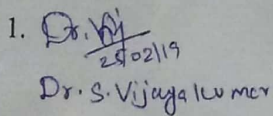 1. Dr. Vij
25/02/19
Dr. S. Vijayakumar